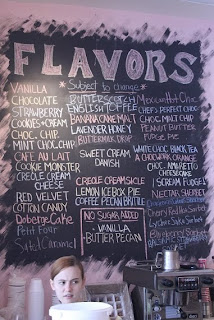 FLAVORS
*Subject to change*
VANILLA
CHOCOLATE
STRAWBERRY
COOKIES + CREAM
CHOC. CHIP
MINT CHOC. CHIP
CAFE AU LAIT
COOKIE MONSTER
CREOLE CREAM
CHEESE
RED VELVET
COTTON CANDY
Doberge Cake
Petit Four
Salted Caramel
BUTTERSCOTCH
ENGLISH TOFFEE
BANANA ONE MALT
LAVENDER HONEY
BUTTERMILK DROP
SWEET CREAM
DANISH
CREOLE CREAMSICLE
LEMON ICEBOX PIE
COFFEE PECAN BRITTLE
NO SUGAR ADDED
- VANILLA
- BUTTER PECAN
Mexican Hot Choc
CHEF'S PERFECT CHOC
CHOC MALT CHIP
PEANUT BUTTER
FUDGE PIE
WHITE CHOC BLACK TEA
A CHOCWORK ORANGE
CHOC. AMARETTO
CHEESECAKE
I SCREAM FUDGE!
NECTAR SHERBET